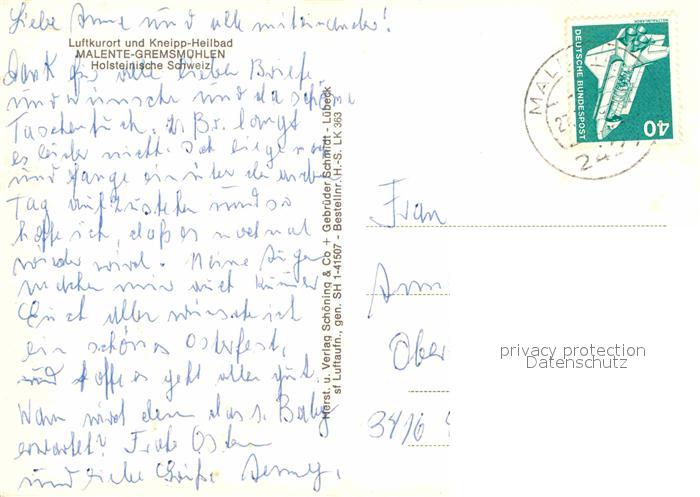 Liebe Anne und alle miteinander!
Luftkurort und Kneipp-Heilbad
MALENTE-GREMSMÜHLEN
Holsteinische Schweiz
Dank für alle lieben Briefe
und wünsche und da schöne
Taschentuch. z. Br. langt
es leider nicht. Ich liege
und fange ein über den andern
Tag aufzustehen und so
hoffe ich, daß es nochmal
wieder wird. Meine Augen
machen mir auch Kummer
Euch allen wünsche ich
ein schönes Osterfest,
und hoffe es geht allen gut.
Wann wird denn das Baby
erwartet? Frohe Ostern
und liebe Grüße
Herst. u. Verlag Schöning & Co + Gebrüder Schmidt - Lübeck
sf Luftaufn., gen. SH 1-41507 - Bestellnr. H.-S. LK 363
DEUTSCHE BUNDESPOST
40
MAL
Frau
Ann
Ober
3416
privacy protection
Datenschutz